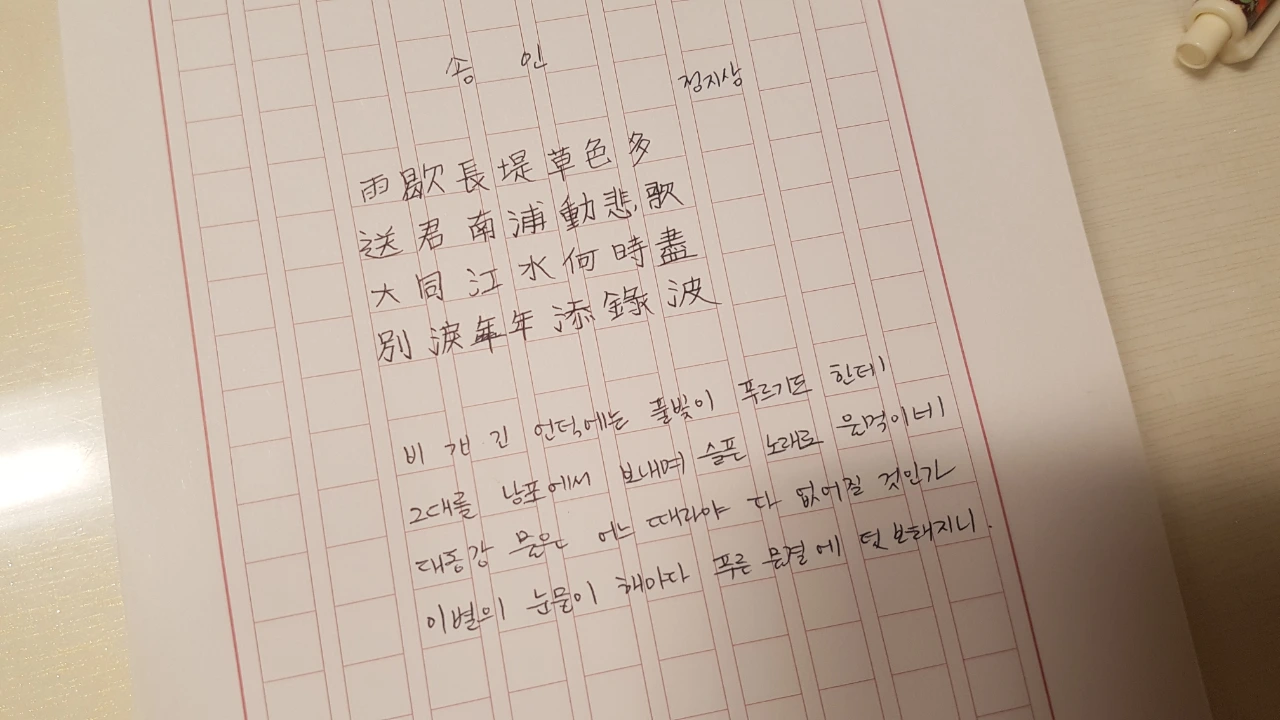 송 인
정지상
雨歇長堤草色多
送君南浦動悲歌
大同江水何時盡
別淚年年添錄波
비 개 긴 언덕에는 풀빛이 푸르기도 한데
그대를 남포에서 보내며 슬픈 노래로 울먹이네
대동강 물은 어느 때라야 다 없어질 것인가
이별의 눈물이 해마다 푸른 물결에 덧보태지니.